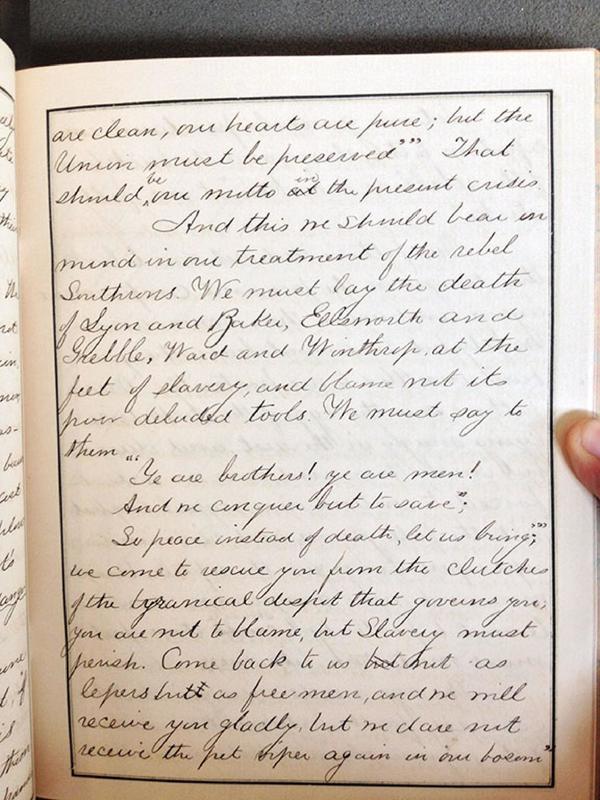 are clean, our hearts are pure; but the
Union must be preserved"'" That
should be our motto in the present crisis.
And this we should bear in
mind in our treatment of the rebel
Southrons. We must lay the death
of Lyon and Baker, Ellsworth and
Grebble, Ward and Winthrop, at the
feet of slavery, and blame not its
poor deluded tools. We must say to
them "'
Ye are brothers! ye are men!
And we conquer but to save";
So peace instead of death, let us bring;"'"
we come to rescue you from the clutches
of the tyranical despot that governs you;
you are not to blame, but Slavery must
perish. Come back to us not as
lepers but as free men, and we will
receive you gladly, but we dare not
receive the pet viper again in our bosom"